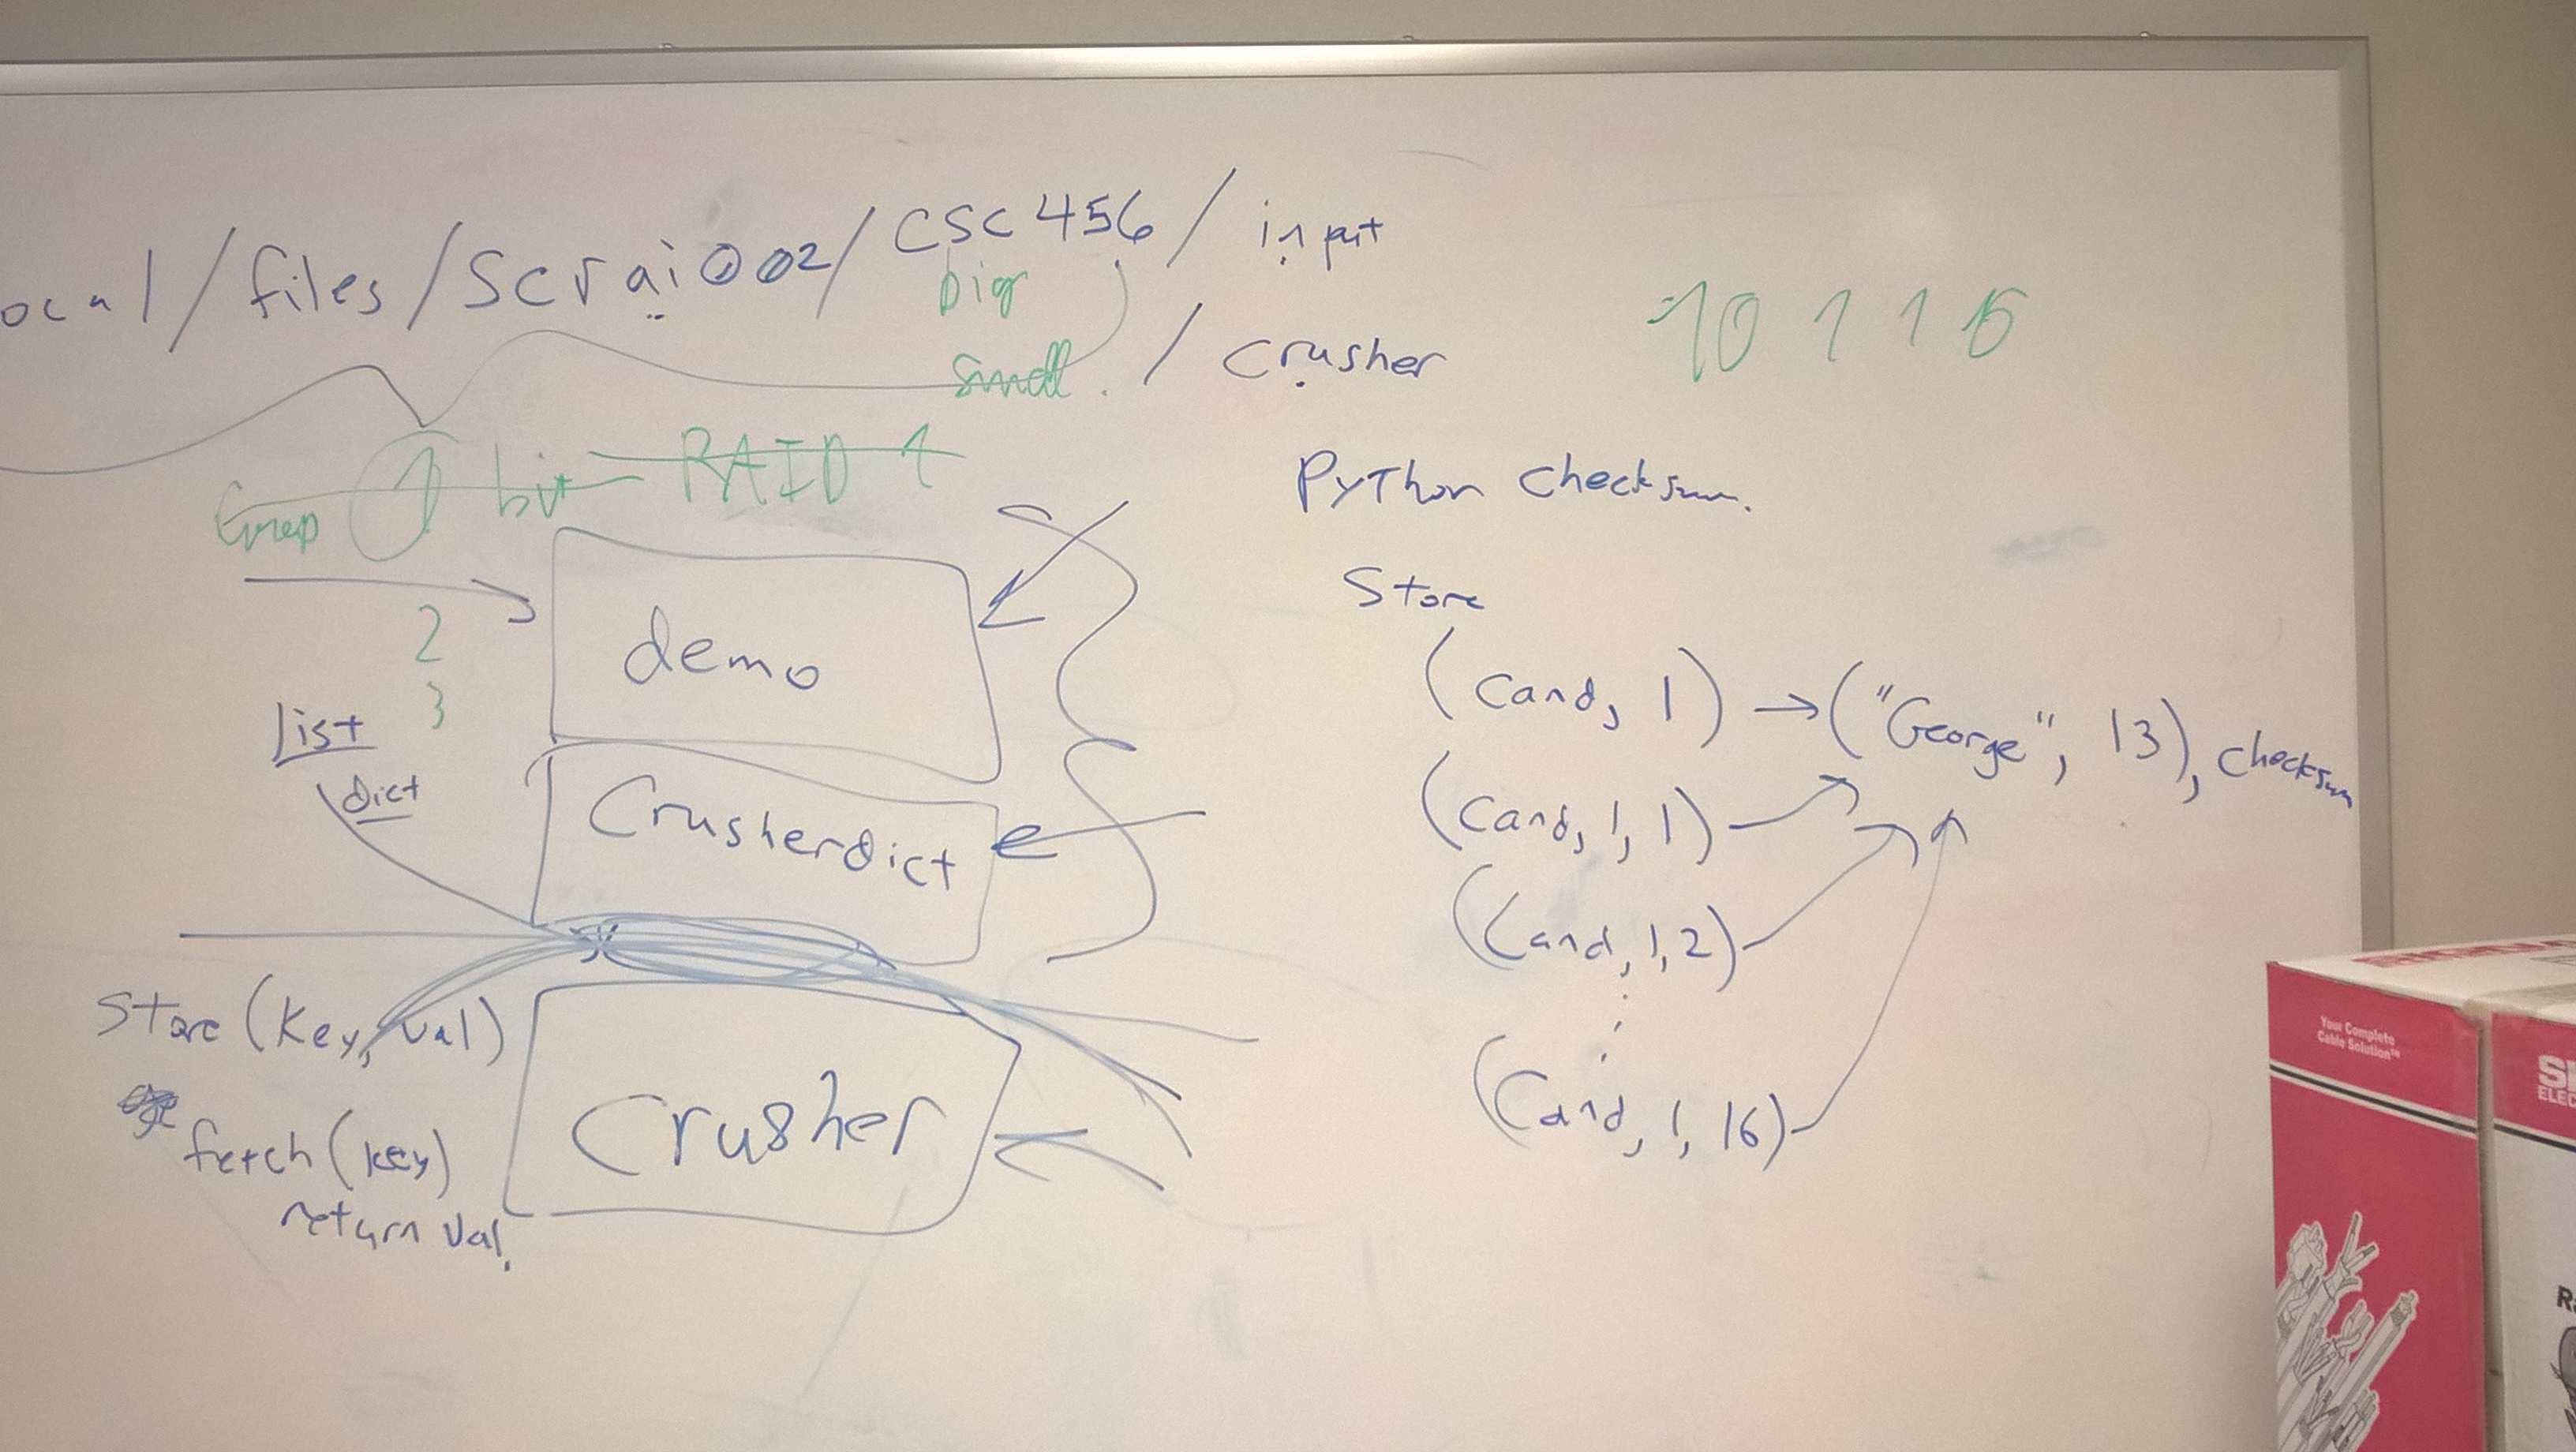 ocal/files/Scrai002/CSC456/input
big
small.
/crusher
10 1 1 6
Group 1 bit RAID 1
2
3
demo
list
dict
Crusherdict
Store (key, val)
fetch (key)
return val.
Crusher
Python Checksum.
Store
(cand, 1) → ("George", 13), checksum
(cand, 1, 1)
(cand, 1, 2)
(cand, 1, 16)
Your Complete
Cable Solution™